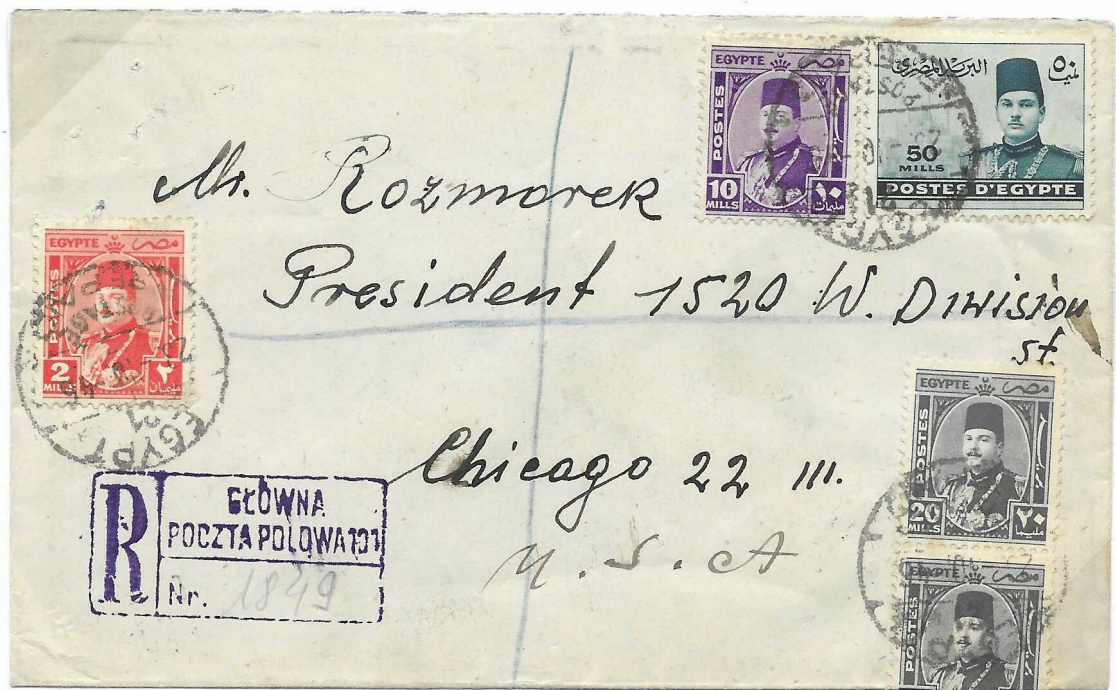 EGYPTE مصر
POSTES
10 MILLS ١٠ مليمات
البريد المصرى ٥٠ مليم
50 MILLS
POSTES D'EGYPTE
Mr. Rozmarek
President 1520 W. Division
st.
Chicago 22 Ill.
U. S. A
EGYPTE مصر
POSTES
2 MILLS ٢ مليمان
EGYPT
EGYPTE مصر
POSTES
20 MILLS ٢٠ مليما
EGYPTE مصر
POSTES
R
GŁÓWNA
POCZTA POLOWA 101
Nr. 1849